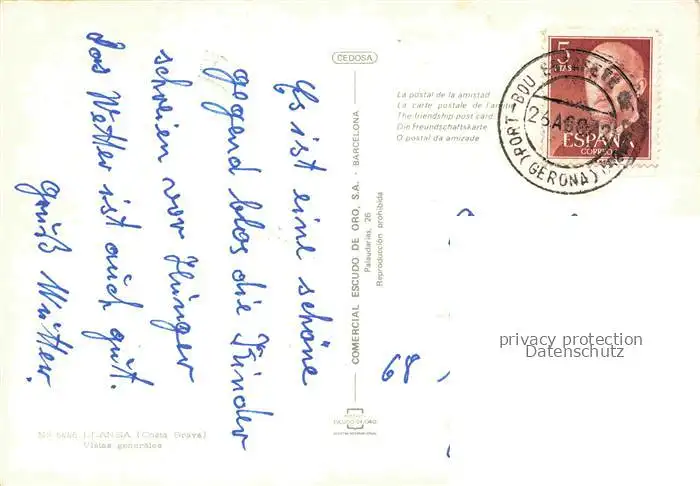 Es ist eine schöne
gegend blos die Kinder
schreien vor Hunger
Das Wetter ist auch gut.
gruß Mutter.
CEDOSA
La postal de la amistad
La carte postale de l'amitié
The friendship post card
Die Freundschaftskarte
O postal da amizade
COMERCIAL ESCUDO DE ORO, S.A. - BARCELONA
Palaudarias, 26
Reproducción prohibida
ESCUDO DE ORO
LLANSA (Costa Brava)
Vistas generales
5
PTAS
ESPAÑA
CORREOS
PORT-BOU
(GERONA)
68
privacy protection
Datenschutz